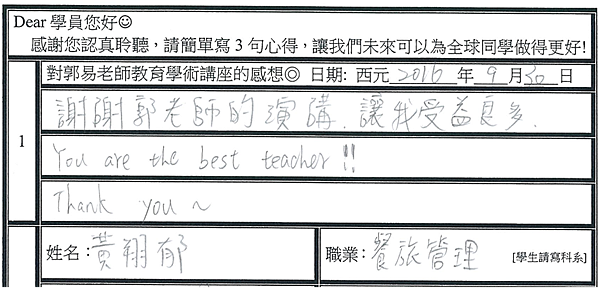 Dear 學員您好☺
感謝您認真聆聽，請簡單寫 3 句心得，讓我們未來可以為全球同學做得更好!
對郭易老師教育學術講座的感想◎ 日期: 西元 2016 年 9 月 30 日
1
謝謝郭老師的演講、讓我受益良多.
You are the best teacher!!
Thank you ~
姓名: 黃翔郁 職業: 餐旅管理 [學生請寫科系]